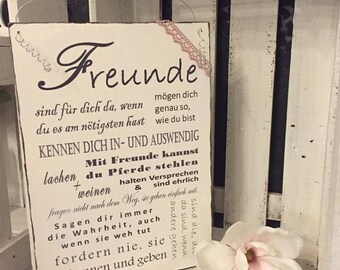 Freunde
sind für dich da, wenn
du es am nötigsten hast
mögen dich
genau so,
wie du bist
KENNEN DICH IN- UND AUSWENDIG
Mit Freunde kannst
du Pferde stehlen
lachen
+
weinen
halten Versprechen
& sind ehrlich
fragen nicht nach dem Weg, sie gehen einfach mit.
Sagen dir immer
die Wahrheit, auch
wenn sie weh tut
sind die, die
da sind, wenn
andere gehen
fordern nie, sie
und geben